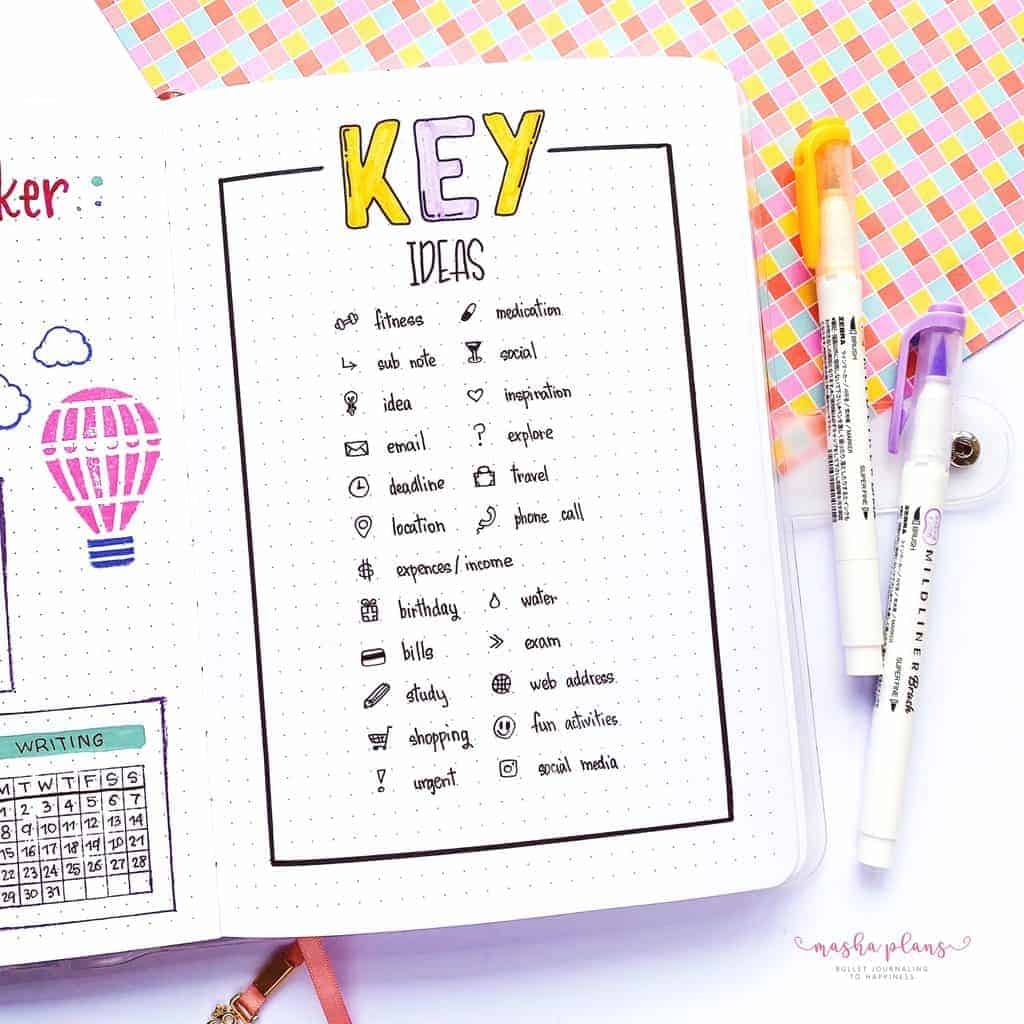 ker
WRITING
M T W T F S S
1 2 3 4 5 6 7
8 9 10 11 12 13 14
15 16 17 18 19 20 21
22 23 24 25 26 27 28
29 30 31
KEY
IDEAS
fitness medication
sub note social
idea inspiration
email ? explore
deadline travel
location phone call
$ expences/income
birthday water
bills » exam
study web address
shopping fun activities
! urgent social media
ZEBRA BRUSH
SUPER FINE
ZEBRA BRUSH
MILDLINER Brush
SUPER FINE
masha plans
BULLET JOURNALING
TO HAPPINESS